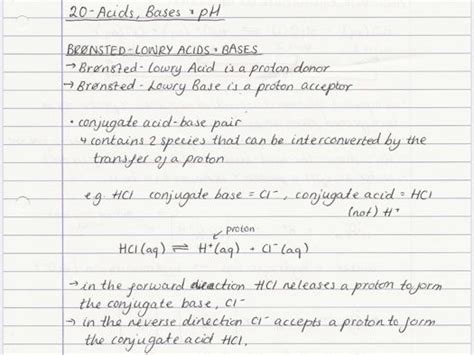 20 - Acids, Bases & pH
BRØNSTED-LOWRY ACIDS & BASES
→ Brønsted-Lowry Acid is a proton donor
→ Brønsted-Lowry Base is a proton acceptor
• conjugate acid-base pair
↳ contains 2 species that can be interconverted by the
transfer of a proton
e.g. HCl conjugate base = Cl⁻, conjugate acid = HCl
(not) H⁺
proton
HCl(aq) ⇌ H⁺(aq) + Cl⁻(aq)
→ in the forward direction HCl releases a proton to form
the conjugate base, Cl⁻
→ in the reverse direction Cl⁻ accepts a proton to form
the conjugate acid HCl.